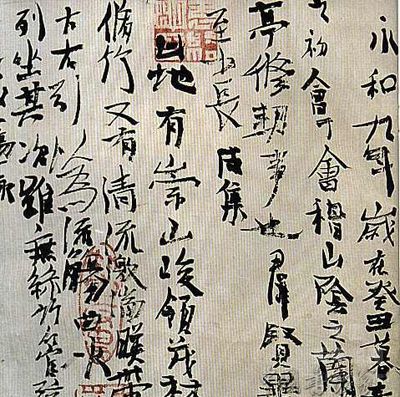 永和九年歲在癸丑暮春
之初會于會稽山陰之蘭
亭脩稧事也羣賢畢
至少長咸集
此地有崇山峻領茂林
脩竹又有清流激湍暎帶
左右引以為流觴曲水
列坐其次雖無絲竹管弦